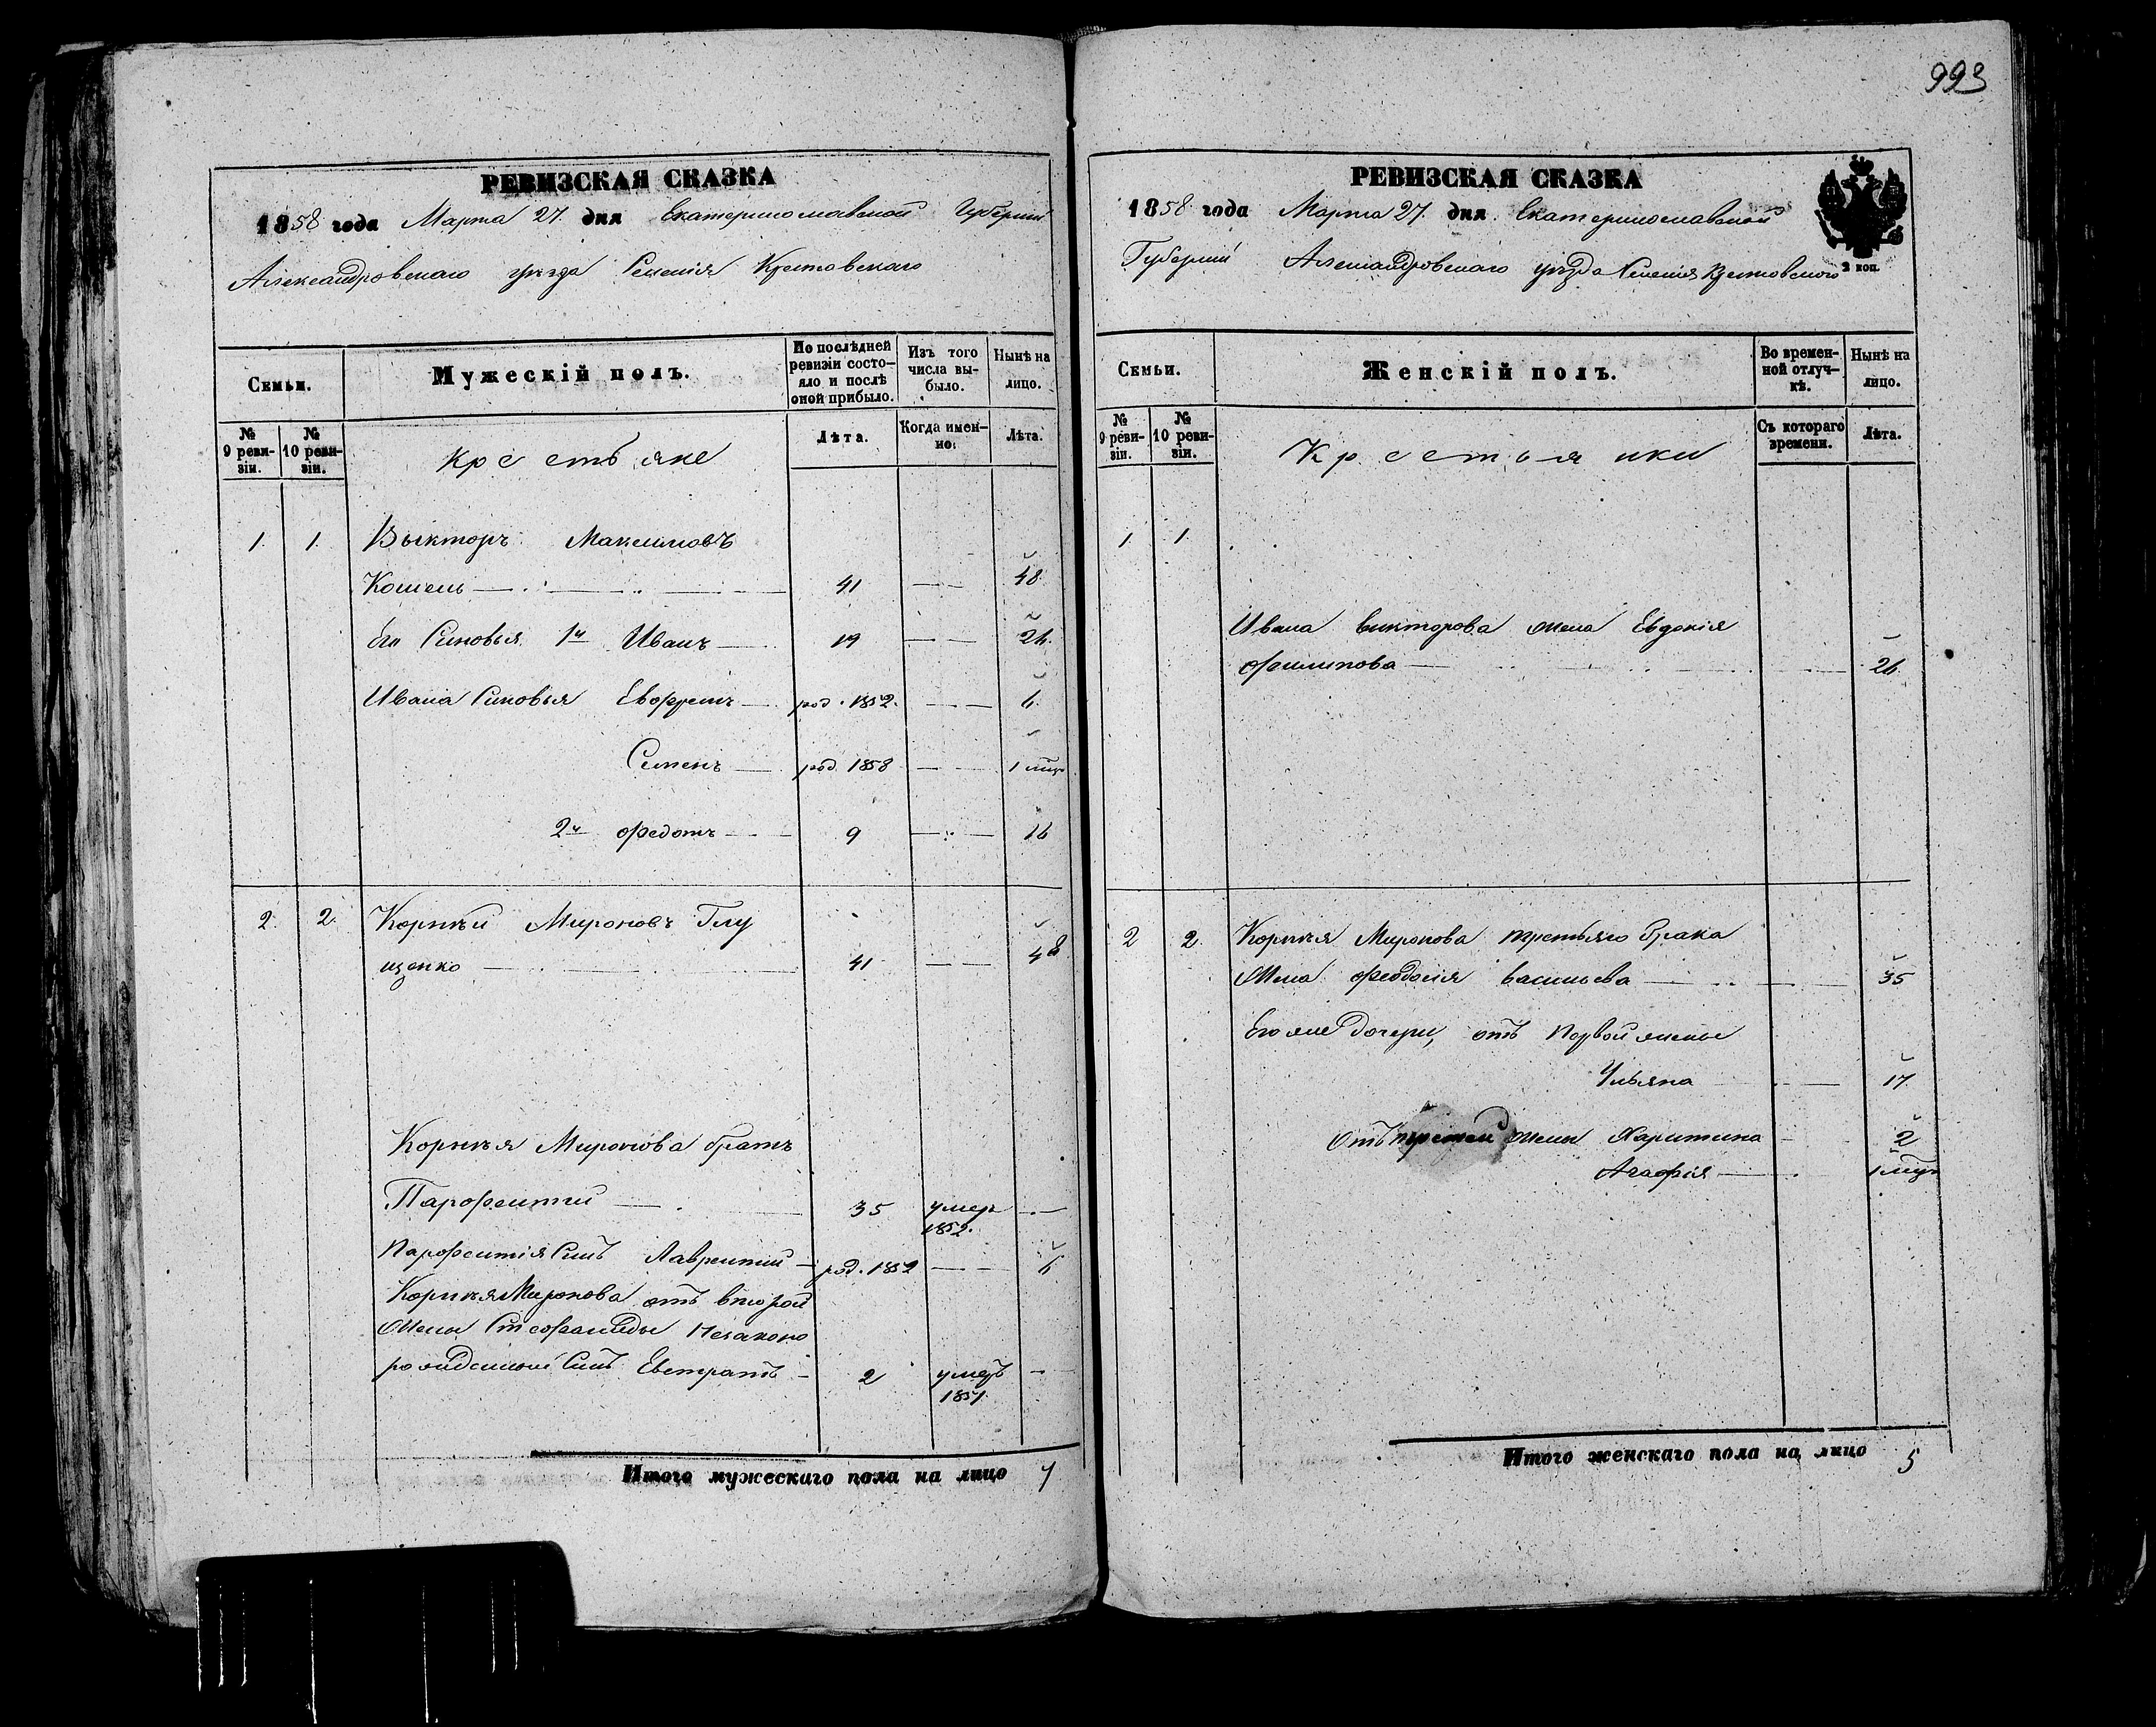 993
РЕВИЗСКАЯ СКАЗКА
1858 года Марта 27. дня Екатеринославской Губерніи
Александровскаго уѣзда Селенія Крестовскаго
Семьи.
Мужескій полъ.
По послѣдней ревизіи состояло и послѣ оной прибыло.
Изъ того числа выбыло.
Нынѣ на лицо.
№ 9 ревизіи.
№ 10 ревизіи.
Крестьяне
Лѣта.
Когда именно.
Лѣта.
1. 1. Выкторъ Максимовъ
Кошель 41 48
Его Синовья 1й Иванъ 19 26.
Ивана Синовья Евофремъ род. 1852. 6.
Семенъ род. 1858 1 мцъ
2й Федотъ 9 16
2. 2. Корнѣй Мироновъ Глу
щенко 41 48
Корнѣя Миронова братъ
Парфентий 35 умер 1852.
Парфентія Синъ Лаврентий род. 1852 6
Корнѣя Миронова отъ второй
Жены Стефаниды Незаконо
рожиденный Синъ Евстратъ 2 умеръ 1851.
Итого мужескаго пола на лицо 7
РЕВИЗСКАЯ СКАЗКА
1858 года Марта 27. дня Екатеринославской
Губерніи Александровскаго уѣзда Селенія Крестовского
2 коп.
Семьи.
Женскій полъ.
Во временной отлучкѣ.
Нынѣ на лицо.
№ 9 ревизіи.
№ 10 ревизіи.
Крестьянки
Съ котораго времени.
Лѣта.
1 1
Ивана Викторова жена Евдокія
Филипова 26
2 2. Корнѣя Миронова третьяго брака
Жена Феодосія Васильева 35
Его же дочери, отъ Первой жены
Ульяна 17
Отъ третей жены Харитина 2
Агафія 1 мцъ
Итого женскаго пола на лицо 5